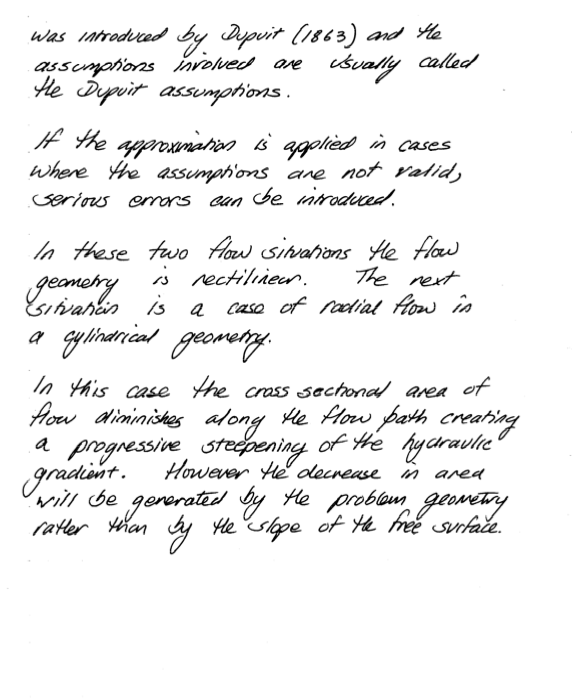 was introduced by Dupuit (1863) and the
assumptions involved are usually called
the Dupuit assumptions.
If the approximation is applied in cases
where the assumptions are not valid,
serious errors can be introduced.
In these two flow situations the flow
geometry is rectilinear. The next
situation is a case of radial flow in
a cylindrical geometry.
In this case the cross sectional area of
flow diminishes along the flow path creating
a progressive steepening of the hydraulic
gradient. However the decrease in area
will be generated by the problem geometry
rather than by the slope of the free surface.